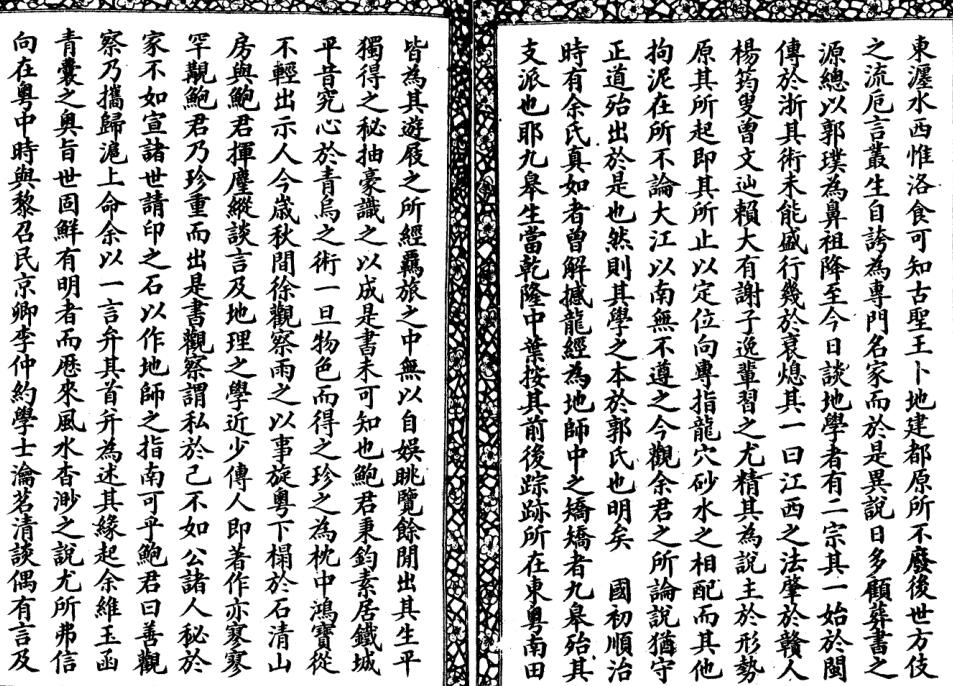 東瀍水西惟洛食可知古聖王卜地建都原所不廢後世方伎
之流卮言叢生自誇為專門名家而於是異說日多顧葬書之
源總以郭璞為鼻祖降至今日談地學者有二宗其一始於閩
傳於浙其術未能盛行幾於衰熄其一曰江西之法肇於贛人
楊筠叟曾文辿賴大有謝子逸輩習之尤精其為說主於形勢
原其所起即其所止以定位向專指龍穴砂水之相配而其他
拘泥在所不論大江以南無不遵之今觀余君之所論說猶守
正道殆出於是也然則其學之本於郭氏也明矣　國初順治
時有余氏真如者曾解撼龍經為地師中之矯矯者九皋殆其
支派也耶九皋生當乾隆中葉按其前後踪跡所在東粵南田
皆為其遊屐之所經羈旅之中無以自娛眺覽餘閒出其生平
獨得之秘抽豪識之以成是書未可知也鮑君秉鈞素居鐵城
平昔究心於青烏之術一旦物色而得之珍之為枕中鴻寶從
不輕出示人今歲秋間徐觀察雨之以事旋粵下榻於石清山
房與鮑君揮麈縱談言及地理之學近少傳人即著作亦寥寥
罕覯鮑君乃珍重而出是書觀察謂私於己不如公諸人秘於
家不如宣諸世請印之石以作地師之指南可乎鮑君曰善觀
察乃攜歸滬上命余以一言弁其首并為述其緣起余維玉函
青囊之奧旨世固鮮有明者而歷來風水杳渺之說尤所弗信
向在粵中時與黎召民京卿李仲約學士瀹茗清談偶有言及